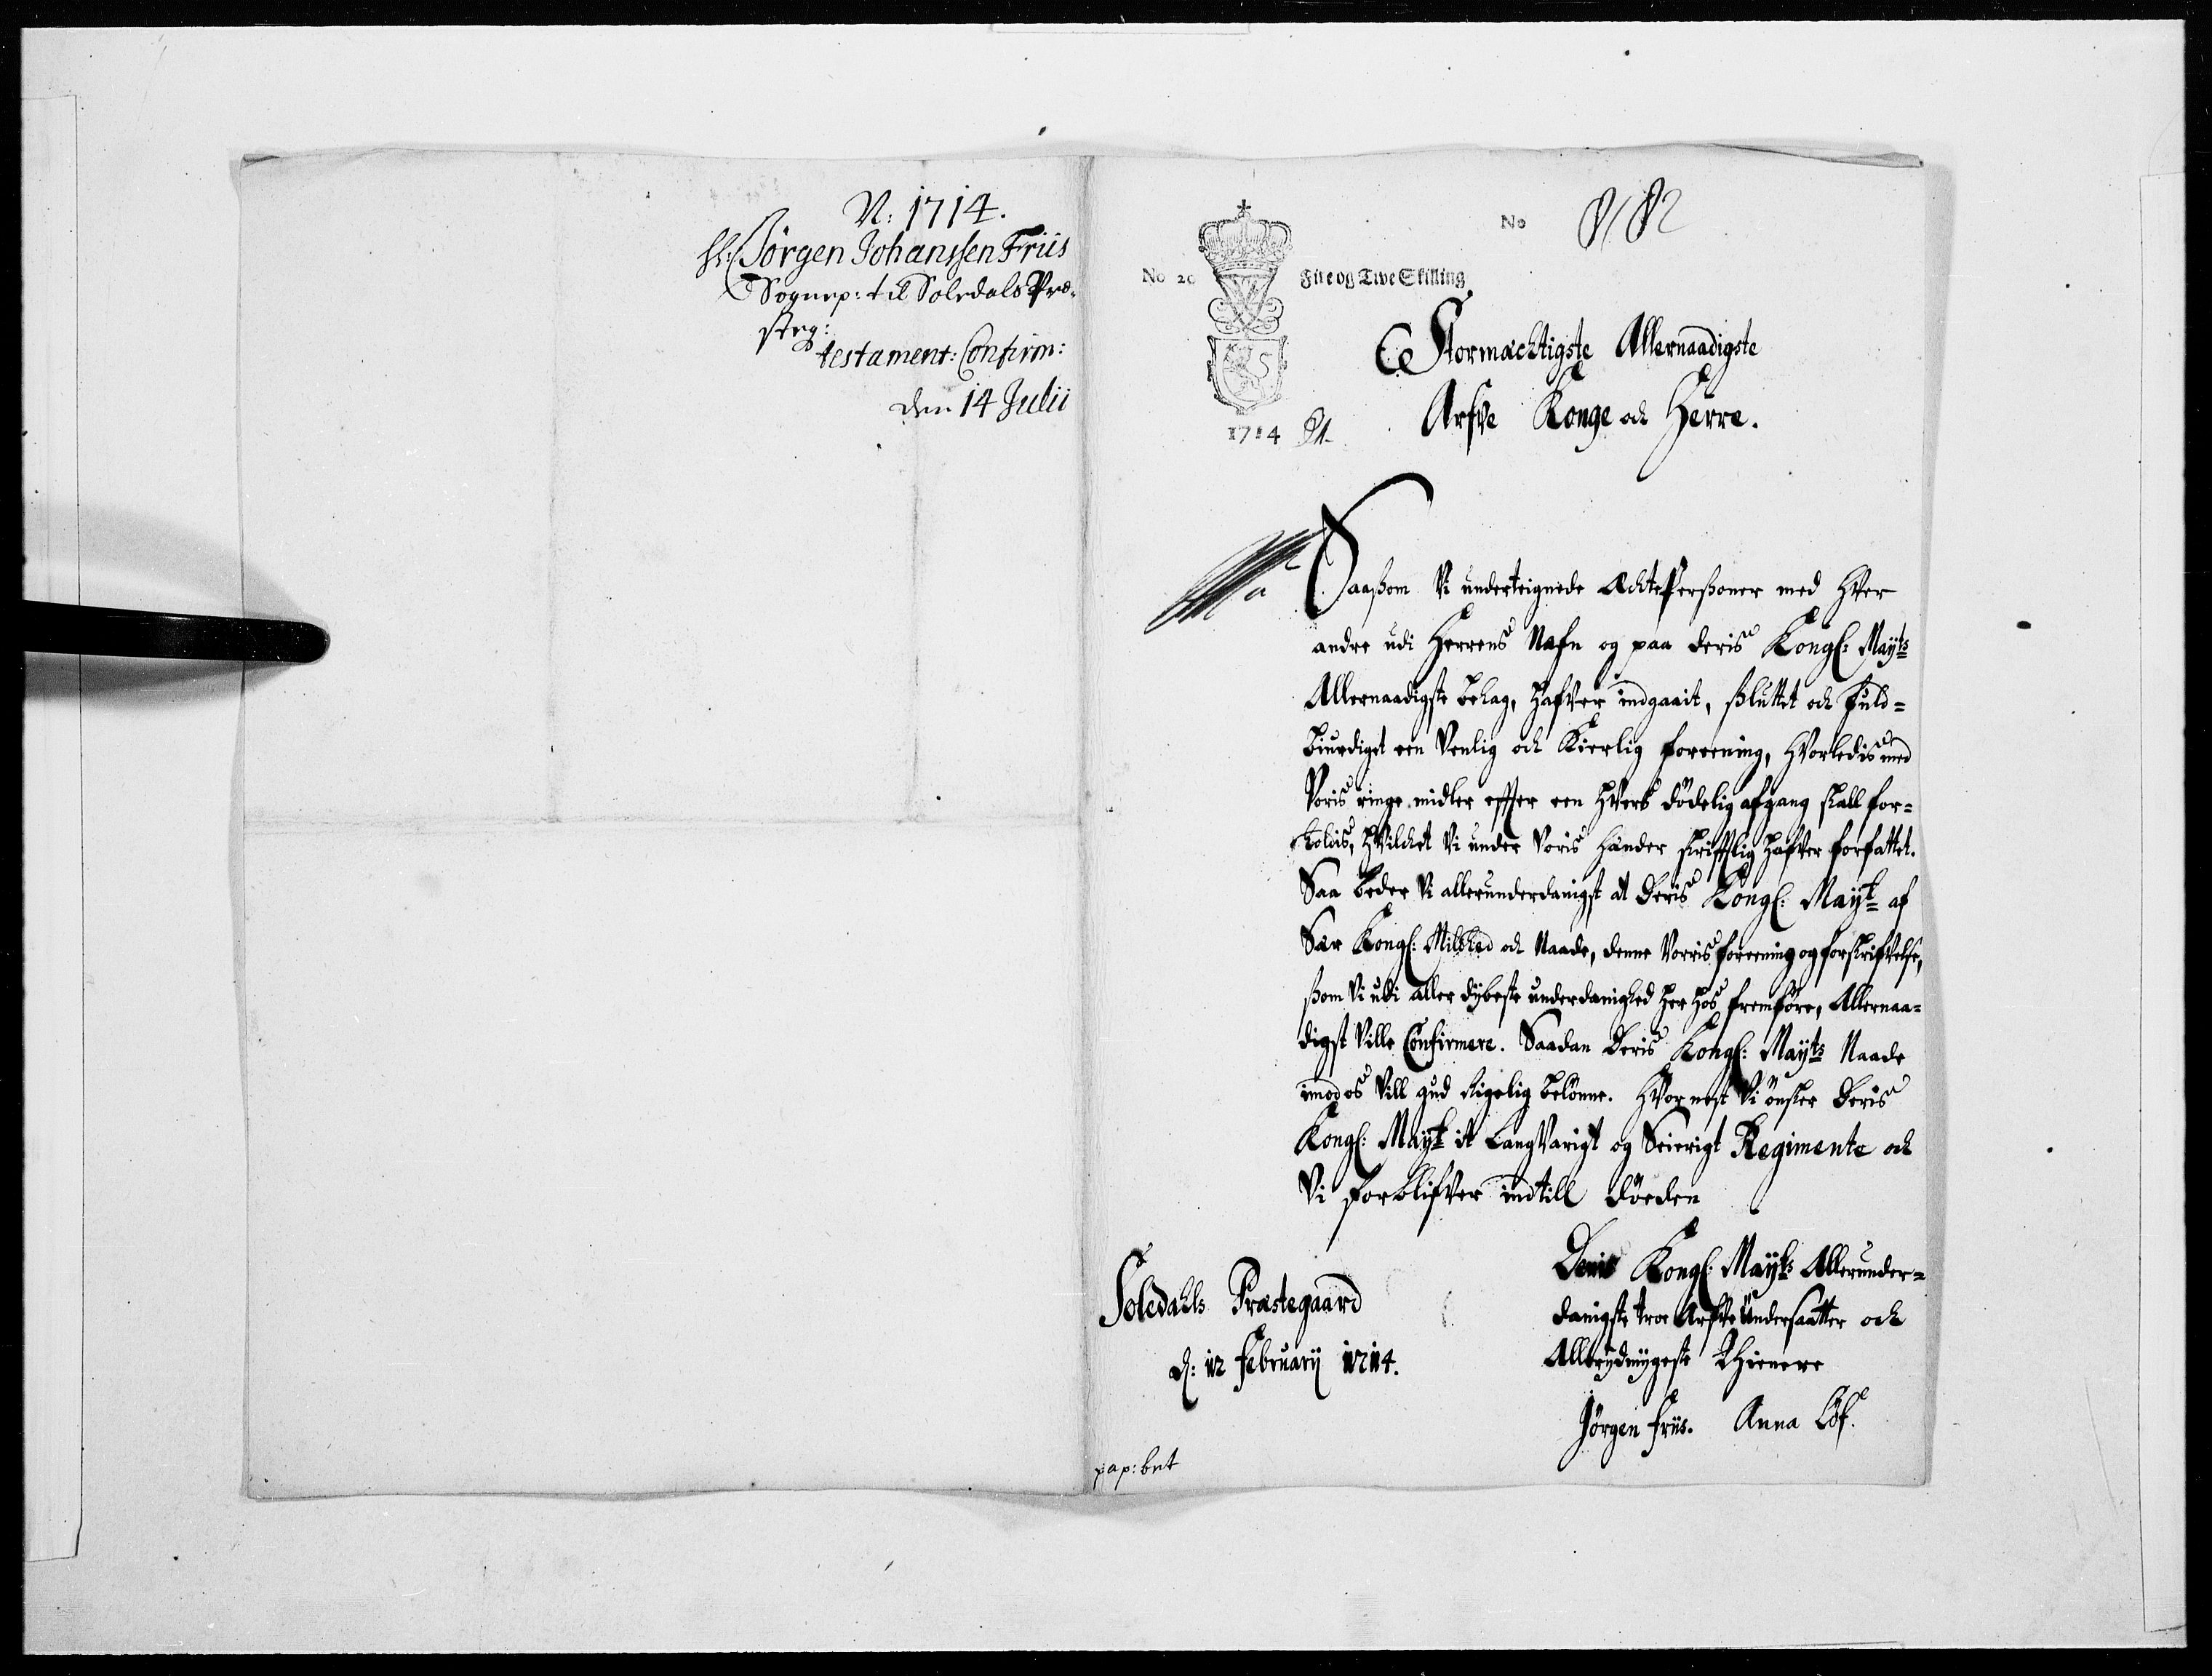 N: 1714.
hl: Jörgen Johanssen Friis
Sognep: til Soledals Præ-
steg:
testament: Confirm:
den 14 Julii
No
No 20
Fire og Tive Skilling
1714
Stormæchtigste Allernaadigste
Arfve Konge och Herre.
Saasom Vi underteignede ÆchtePersoner med hver
andre udi Herrens Nafn og paa deris Kongl: Mayts
Allernaadigste behag, hafver indgaait, sluttet och fuld-
biurdiget een Venlig och Kierlig foreening, hvorledis med
Voris ringe midler effter een hvers dödelig afgang skall for-
holdis, hvilchet Vi under Voris hænder skrifftlig hafver forfattet.
Saa beder Vi allerunderdanigst at Deris Kongl: Mayt af
Sær Kongl: Mildhed och Naade, denne Vorris foreening og forskrifvelse,
som Vi udi aller dybeste underdanighed her hos fremföre, Allernaa-
digst Ville Confirmere. Saadan Deris Kongl: Mayts Naade
imod os Vill gud Rigelig belönne. Hvor nest Vi önsker Deris
Kongl: Mayt it Langvarigt og Seierigt Regimente och
Vi forblifver indtill döeden
Deris Kongl: Mayts Allerunder-
danigste troe Arfve Undersaatter och
Allerydmygeste Thienere
Jörgen Friis. Anna Löf.
Soledahls Præstegaard
d: 12 Februarij 1714.
pap: bet